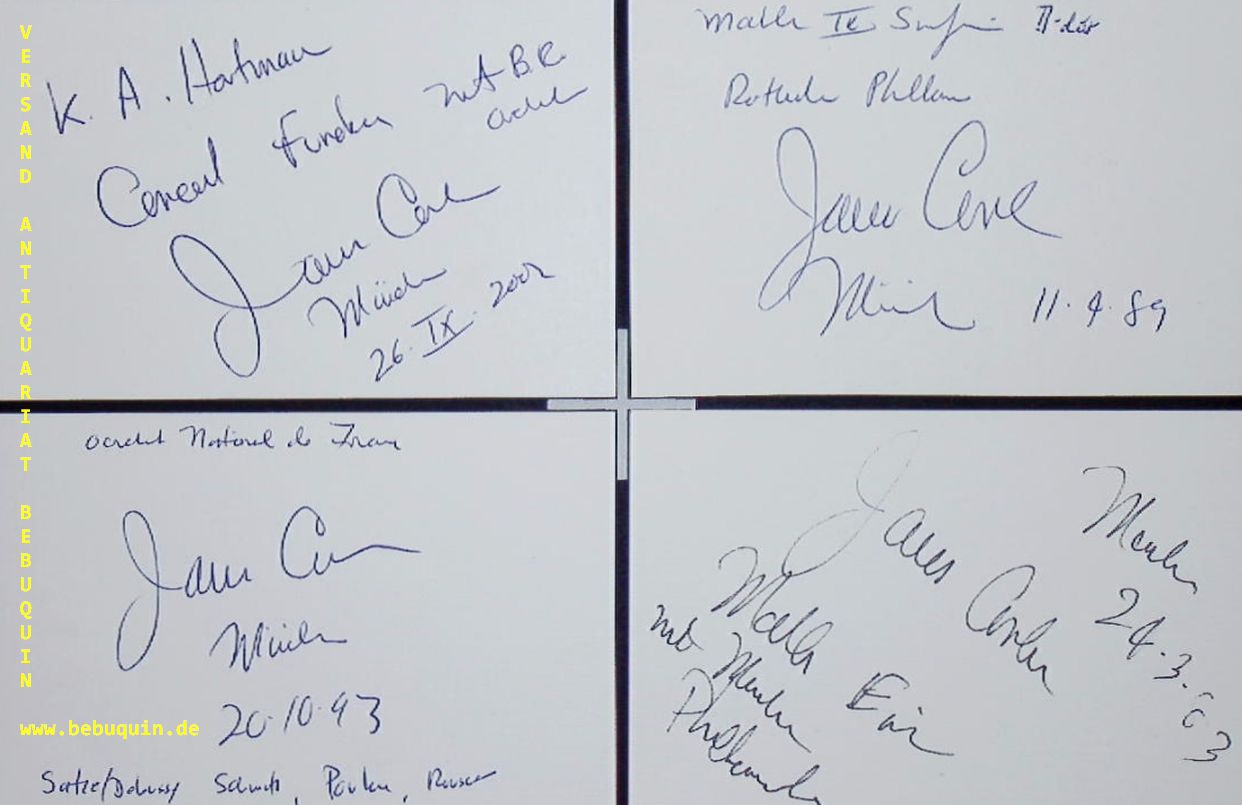 VERSAND ANTIQUARIAT BEBUQUIN
www.bebuquin.de
K. A. Hartman
Concert Funebre mit B.R.
James Conl
München
26. IX. 2002
Mahler IX Sinfonie
Rotterdam Philharm
James Conl
München 11.4.89
Orchest National de France
James Con
München
20.10.93
Satie/Debussy Schmitt, Poulenc, Roussel
James Conlon
München
24.3.'03
Mahler Ein
mit München
Philharmonik